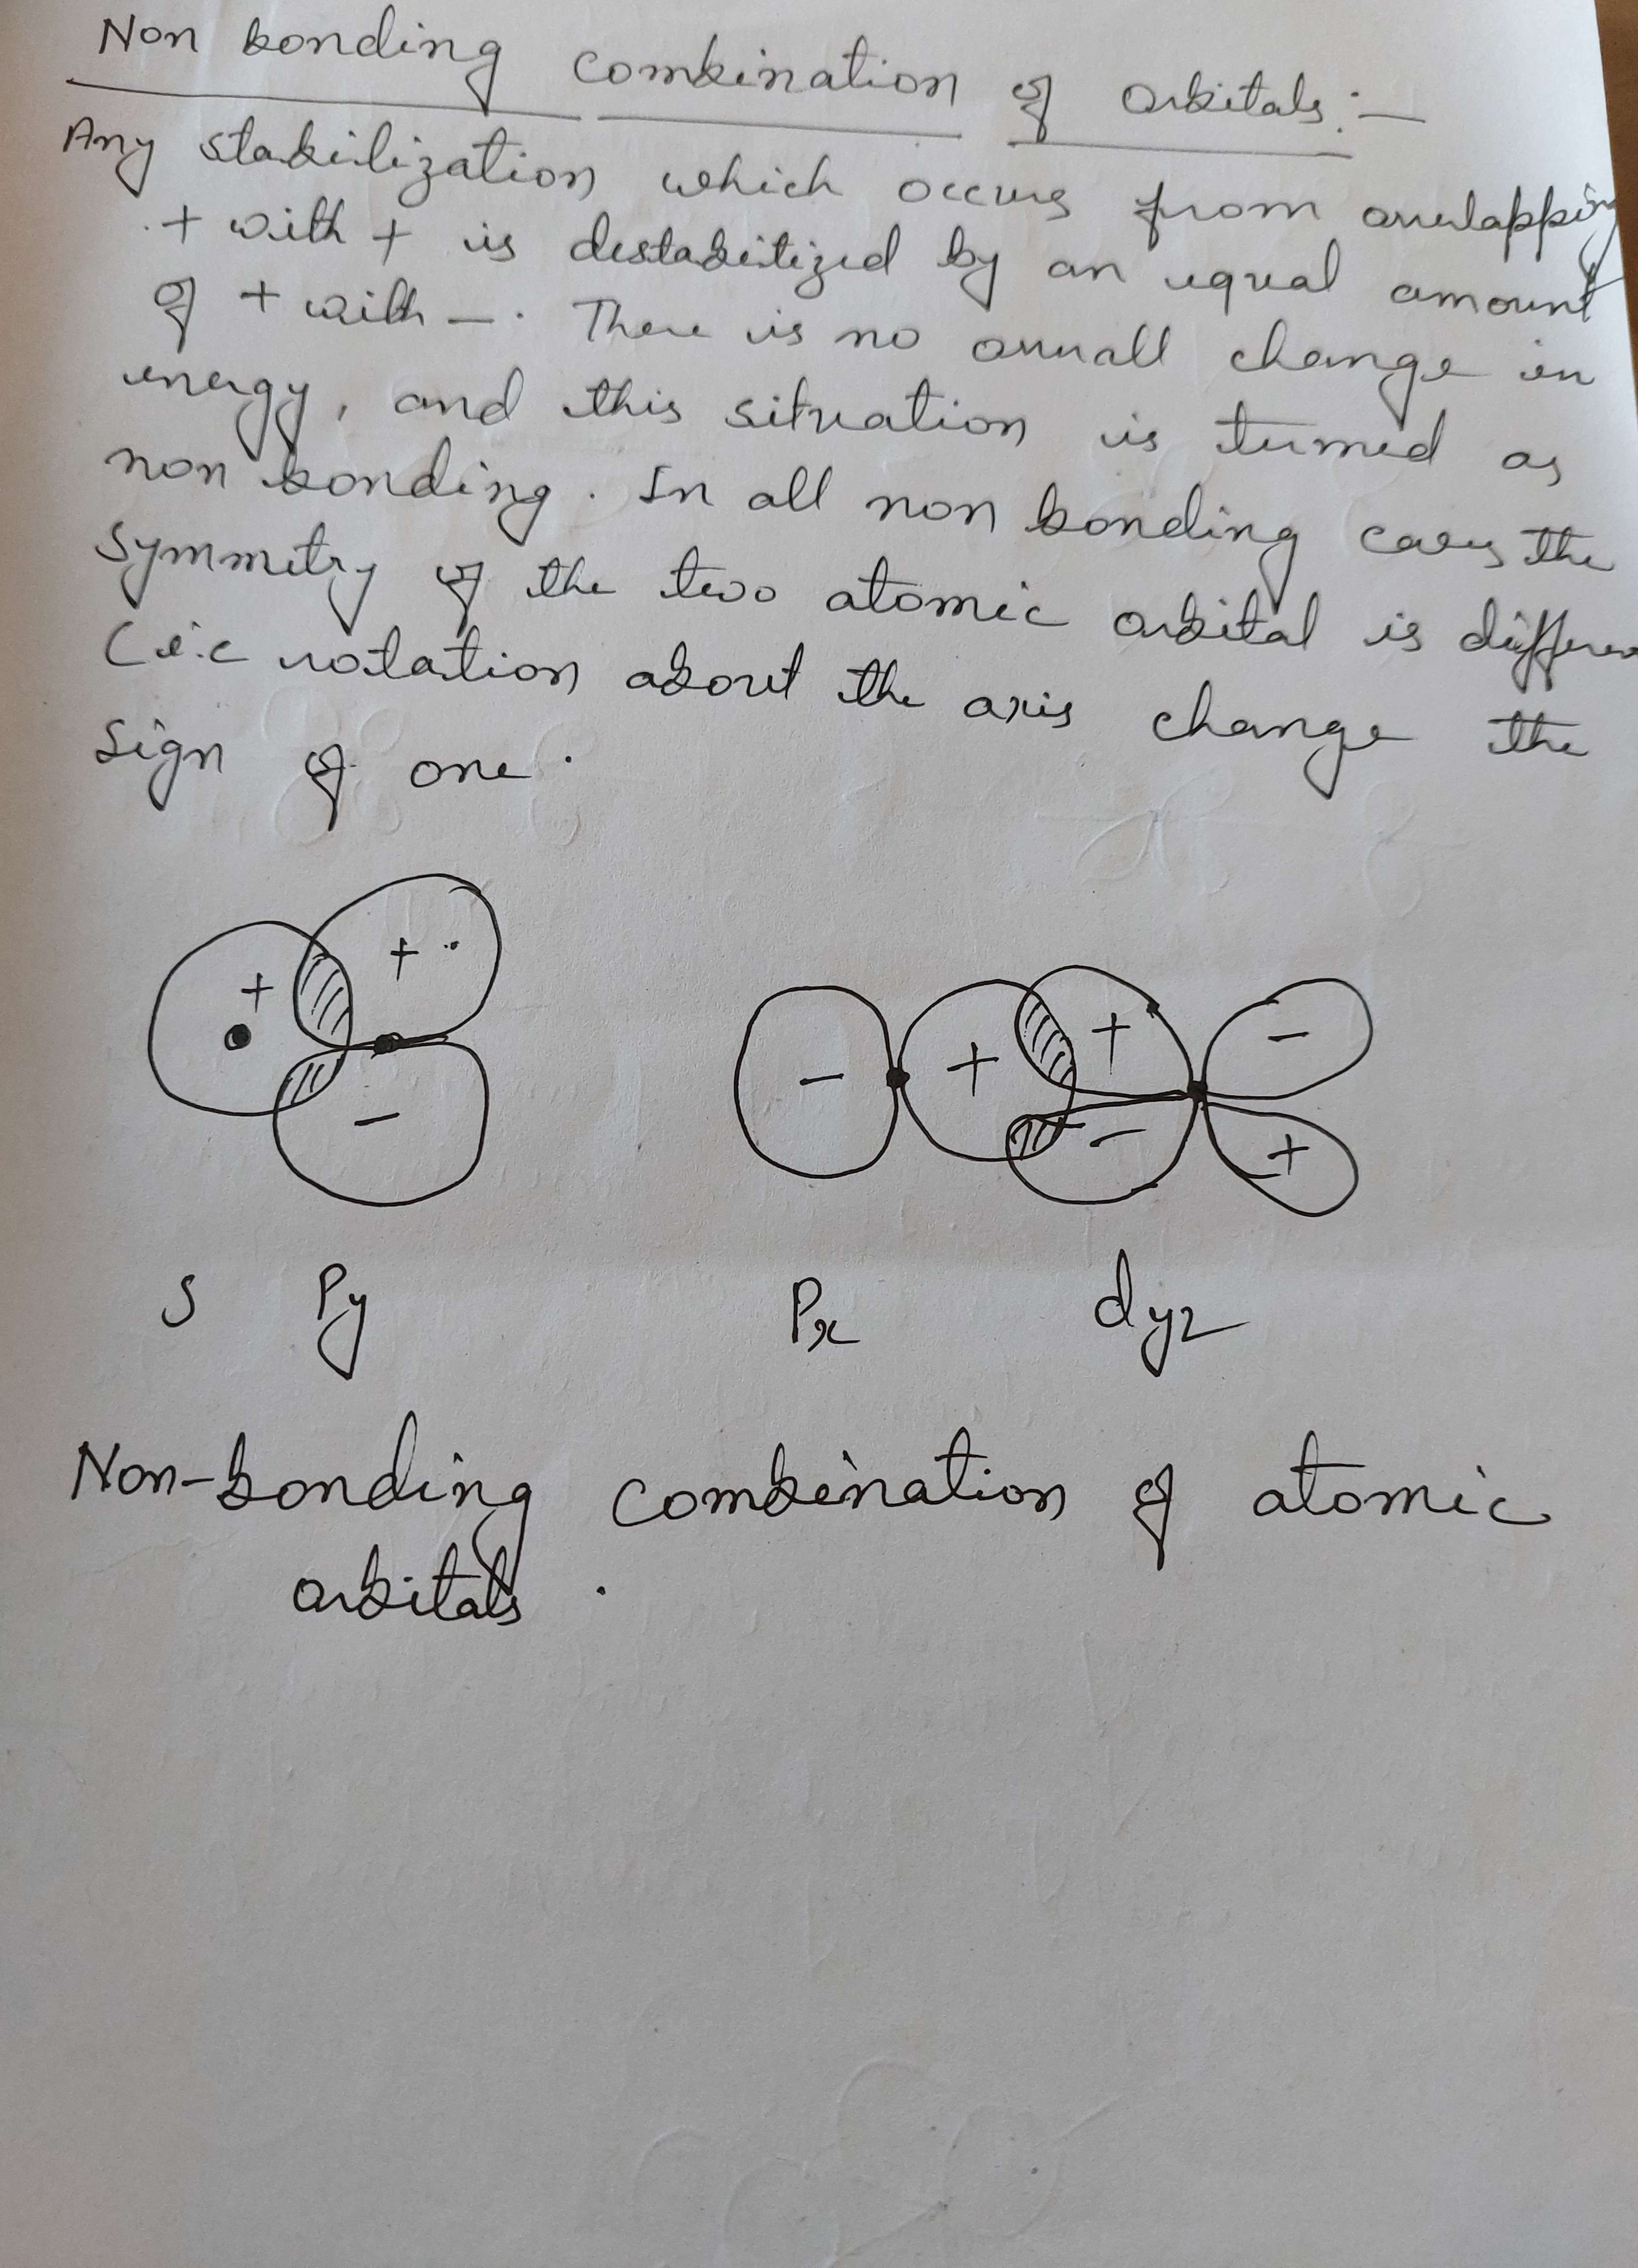 Non bonding combination of orbitals:-
Any stabilization which occurs from overlapping
+ with + is destabilized by an equal amount
of + with -. There is no overall change in
energy, and this situation is termed as
non bonding. In all non bonding cases the
symmetry of the two atomic orbital is differen
(i.e rotation about the axis change the
sign of one.
+ + -
- + + - - +
S Py Px dyz
Non-bonding combination of atomic
orbitals.